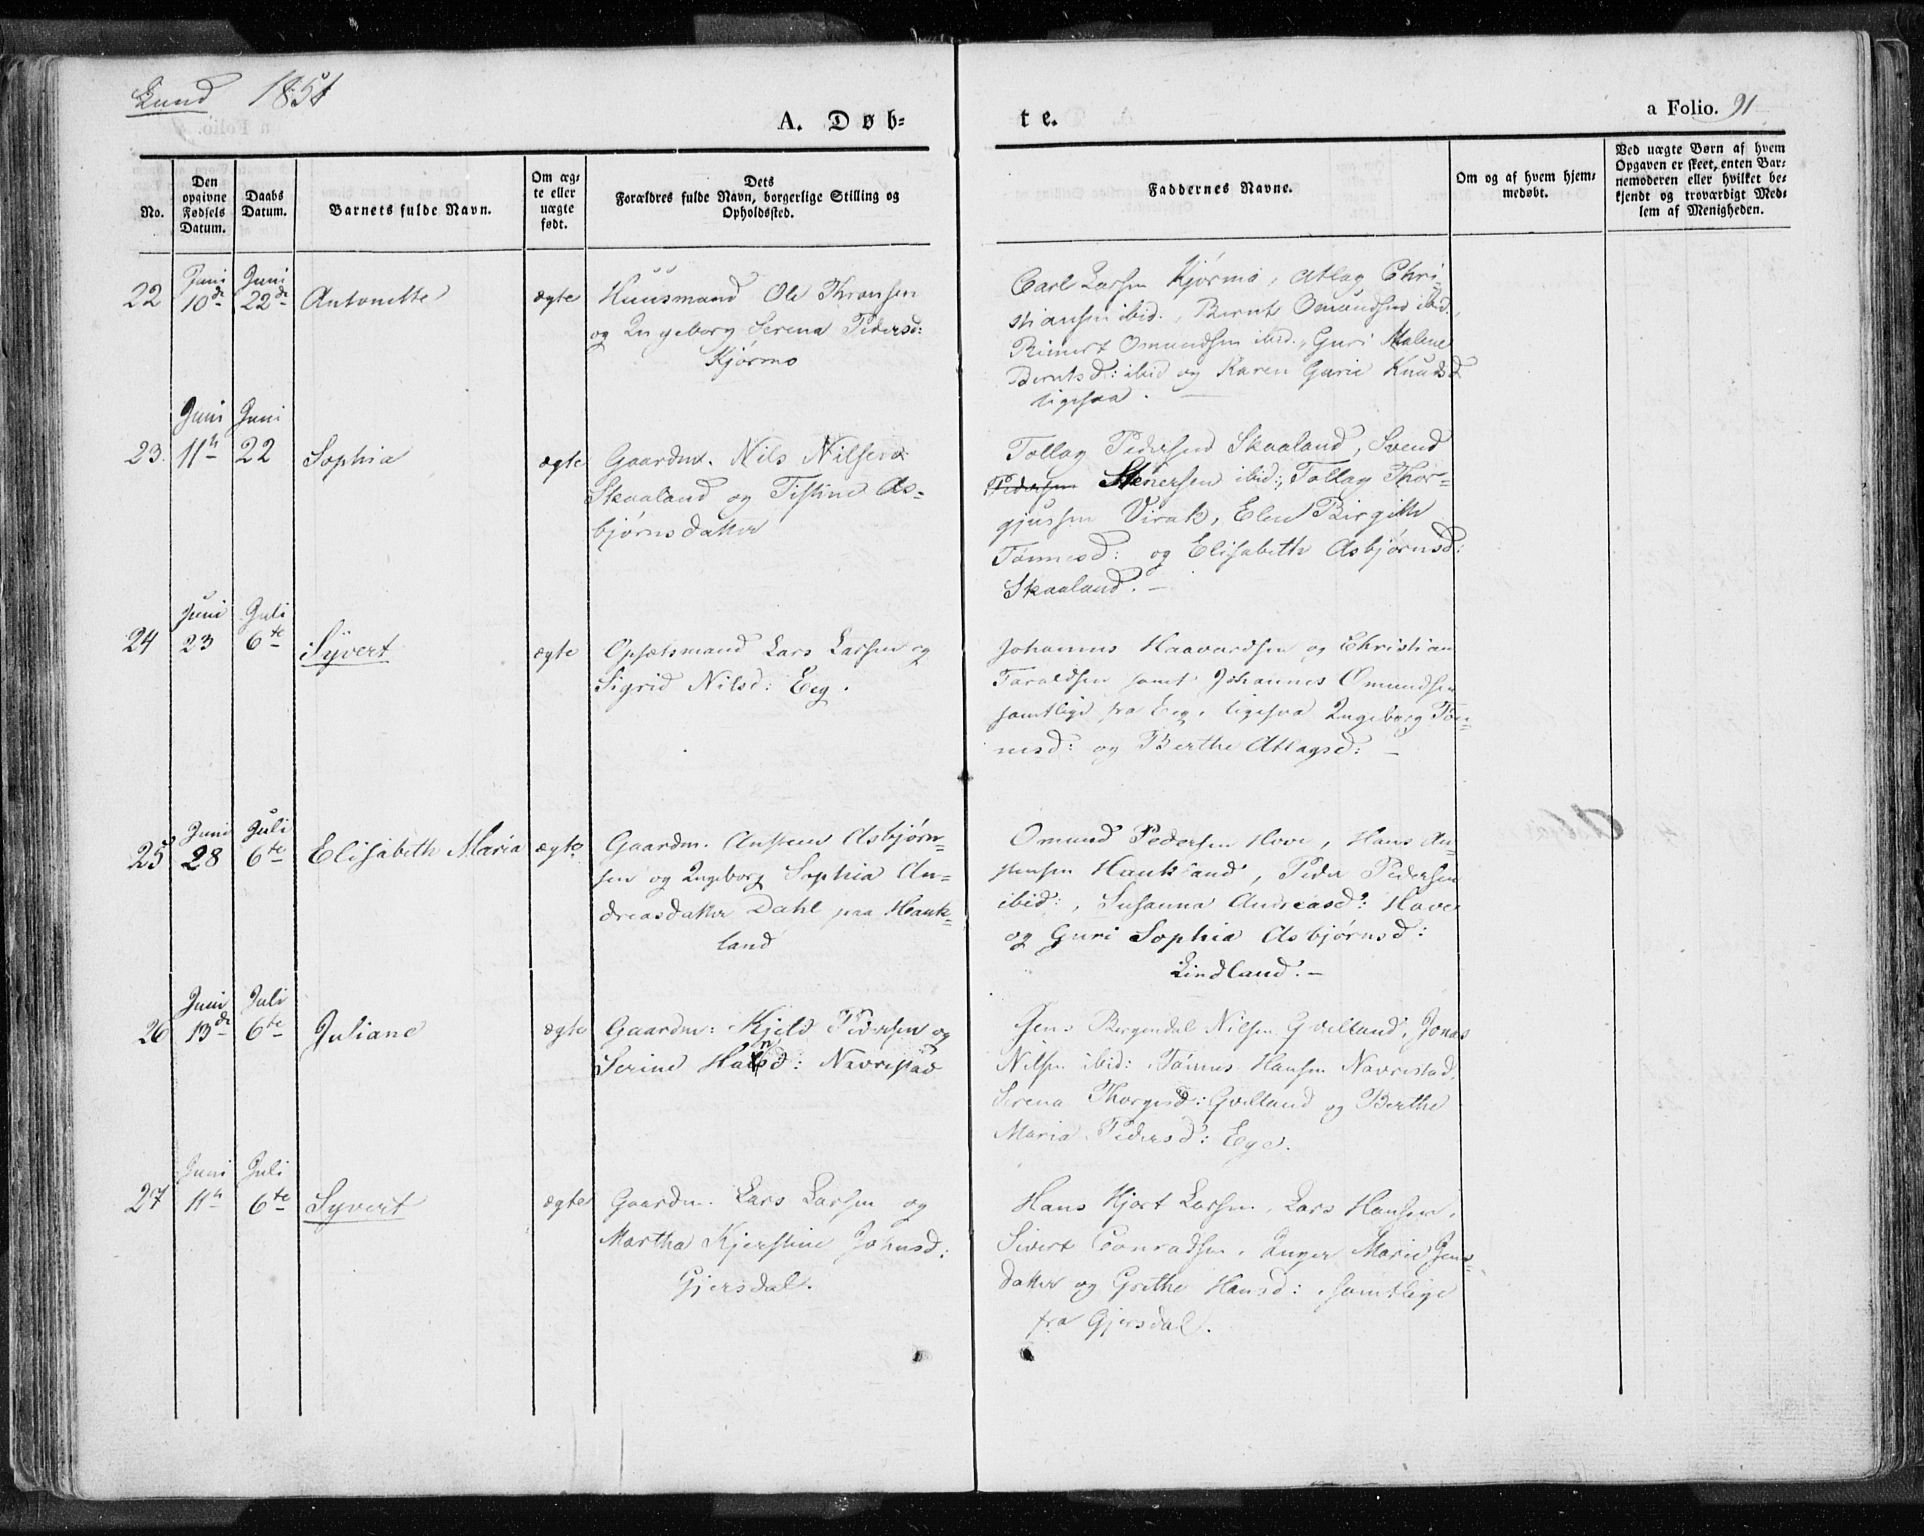 Lund 1851
A. Døb-
te.
a Folio. 91
No.
Den
opgivne
Fødsels
Datum.
Daabs
Datum.
Barnets fulde Navn.
Om æg-
te eller
uægte
født.
Dets
Forældres fulde Navn, borgerlige Stilling og
Opholdssted.
Faddernes Navne.
Om og af hvem hjem-
medøbt.
Ved uægte Børn af hvem
Opgaven er skeet, enten Bar-
nemoderen eller hvilket be-
kjendt og troværdigt Med-
lem af Menigheden.
Juni Juni
22 10de 22de Antonette ægte Huusmand Ole Thronsen
og Ingeborg Serena Pedersd:
Kjørmo
Carl Larsen Kjørmo, Atlag Chri-
stiansen ibid., Bernt Omundsen ibid.,
Reinert Omundsen ibid., Guri Malene
Berntsd: ibid og Karen Gurie Knudsd
ligesaa.
Juni Juni
23. 11te 22 Sophia ægte Gaardm. Nils Nilsen
Skaaland og Tistine As-
bjørnsdatter
Tollag Pedersen Skaaland, Svend
Pedersen Stenersen ibid:, Tollag Thor-
gjussen Virak, Elen Birgitte
Tønnesd: og Elisabeth Asbjørnsd:
Skaaland. -
Juni Juli
24 23 6te Syvert ægte Opsætsmand Lars Larsen og
Sigrid Nilsd: Eeg.
Johannes Haavardsen og Christian
Taraldsen samt Johannes Omundsen
samtlige fra Eeg, ligesaa Ingeborg Tøn-
nesd: og Berthe Atlagsd: -
Juni Juli
25 28 6te Elisabeth Maria ægte Gaardm. Austen Asbjørn-
sen og Ingeborg Sophia An-
dreasdatter Dahl paa Hauk-
land
Omund Pedersen Hove, Hans Au-
stensen Haukland, Peder Pedersen
ibid:, Susanna Andreasd: Hove
og Guri Sophia Asbjørnsd:
Lindland. -
Juni Juli
26 13de 6te Juliane ægte Gaardm: Kjeld Pedersen og
Serine Hansd: Navrestad
Jens Bergendal Nilsen Gvelland, Jonas
Nilsen ibid: Tønnes Hansen Navrestad,
Serena Thorgesd: Gvelland og Berthe
Maria Pedersd: Ege.
Juni Juli
27 11te 6te Syvert ægte Gaardm. Lars Larsen og
Martha Kjerstine Johnsd:
Gjersdal.
Hans Hjort Larsen, Lars Hansen,
Sivert Conradsen, Anger Marie Jens-
datter og Grethe Hansd: samtlige
fra Gjersdal.